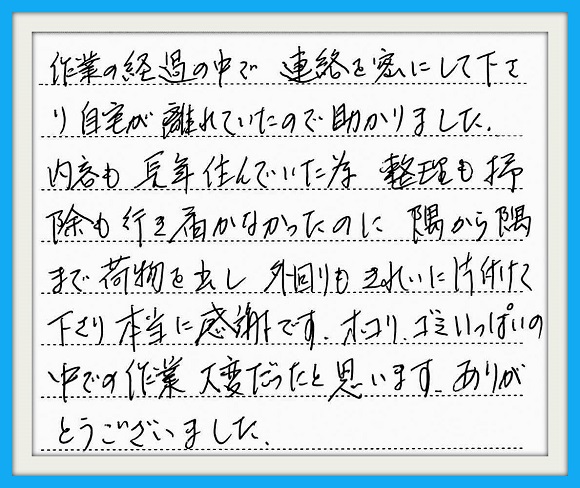 作業の経過の中で 連絡を密にして下さ
り自宅が離れていたので助かりました.
内容も長年住んでいた為 整理も掃
除も行き届かなかったのに 隅から隅
まで荷物を出し 外回りもきれいに片付けて
下さり本当に感謝です. ホコリ.ゴミいっぱいの
中での作業 大変だったと思います. ありが
とうございました.